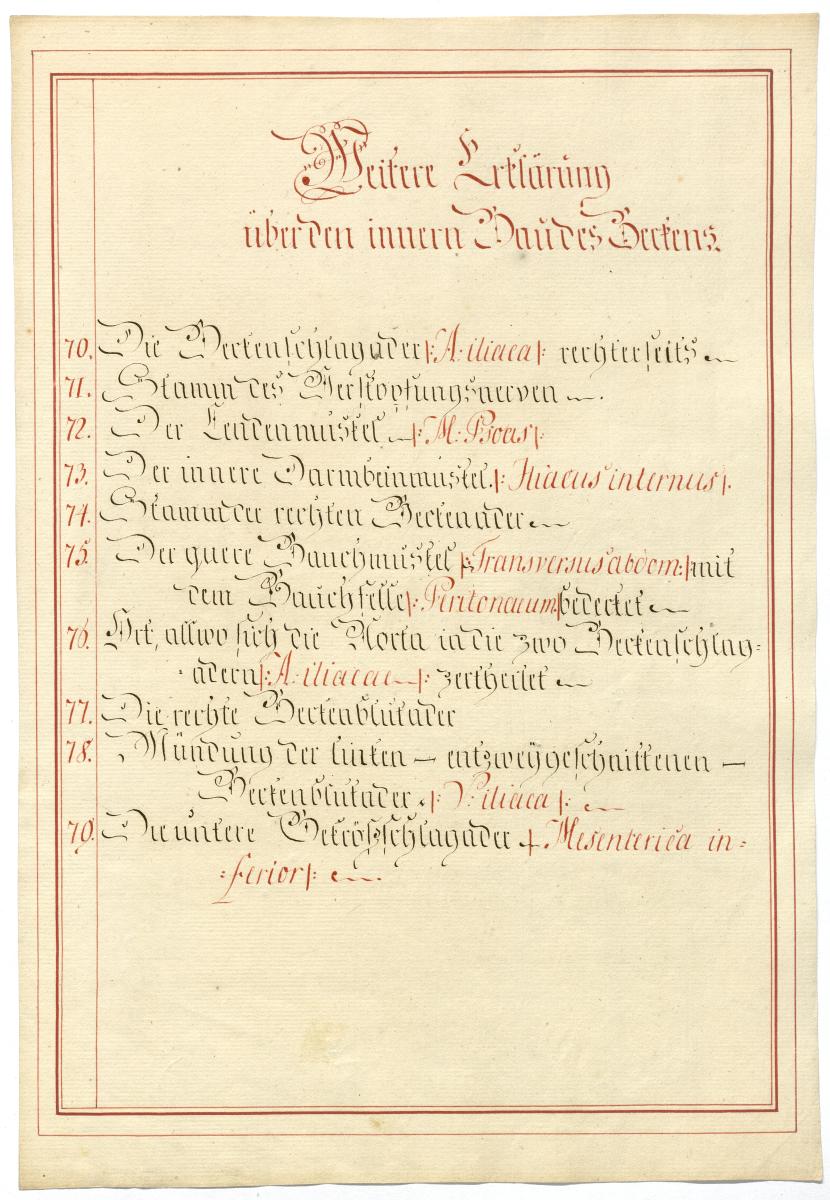 Weitere Erklärung
über den innern Bau des Beckens.
70. Die Beckenschlagader |: A: iliaca :| rechterseits
71. Stamm des Verstopfungsnerven.
72. Der Lendenmuskel |: M: Psoas :|
73. Der innere Darmbeinmuskel. |: Iliacus internus :|.
74. Stamm der rechten Beckenader
75. Der quere Bauchmuskel |: Transversus abdom: :| mit
dem Bauchfelle |: Peritonaeum :| bedecket
76. Ort, allwo sich die Aorta in die zwo Beckenschlag=
=adern |: A: iliacae :| zertheilet
77. Die rechte Beckenblutader
78. Mündung der linken — entzweÿgeschnittenen —
Beckenblutader. |: V: iliaca :|.
79. Die untere Gekrösschlagader |: Mesenterica in=
=ferior :|